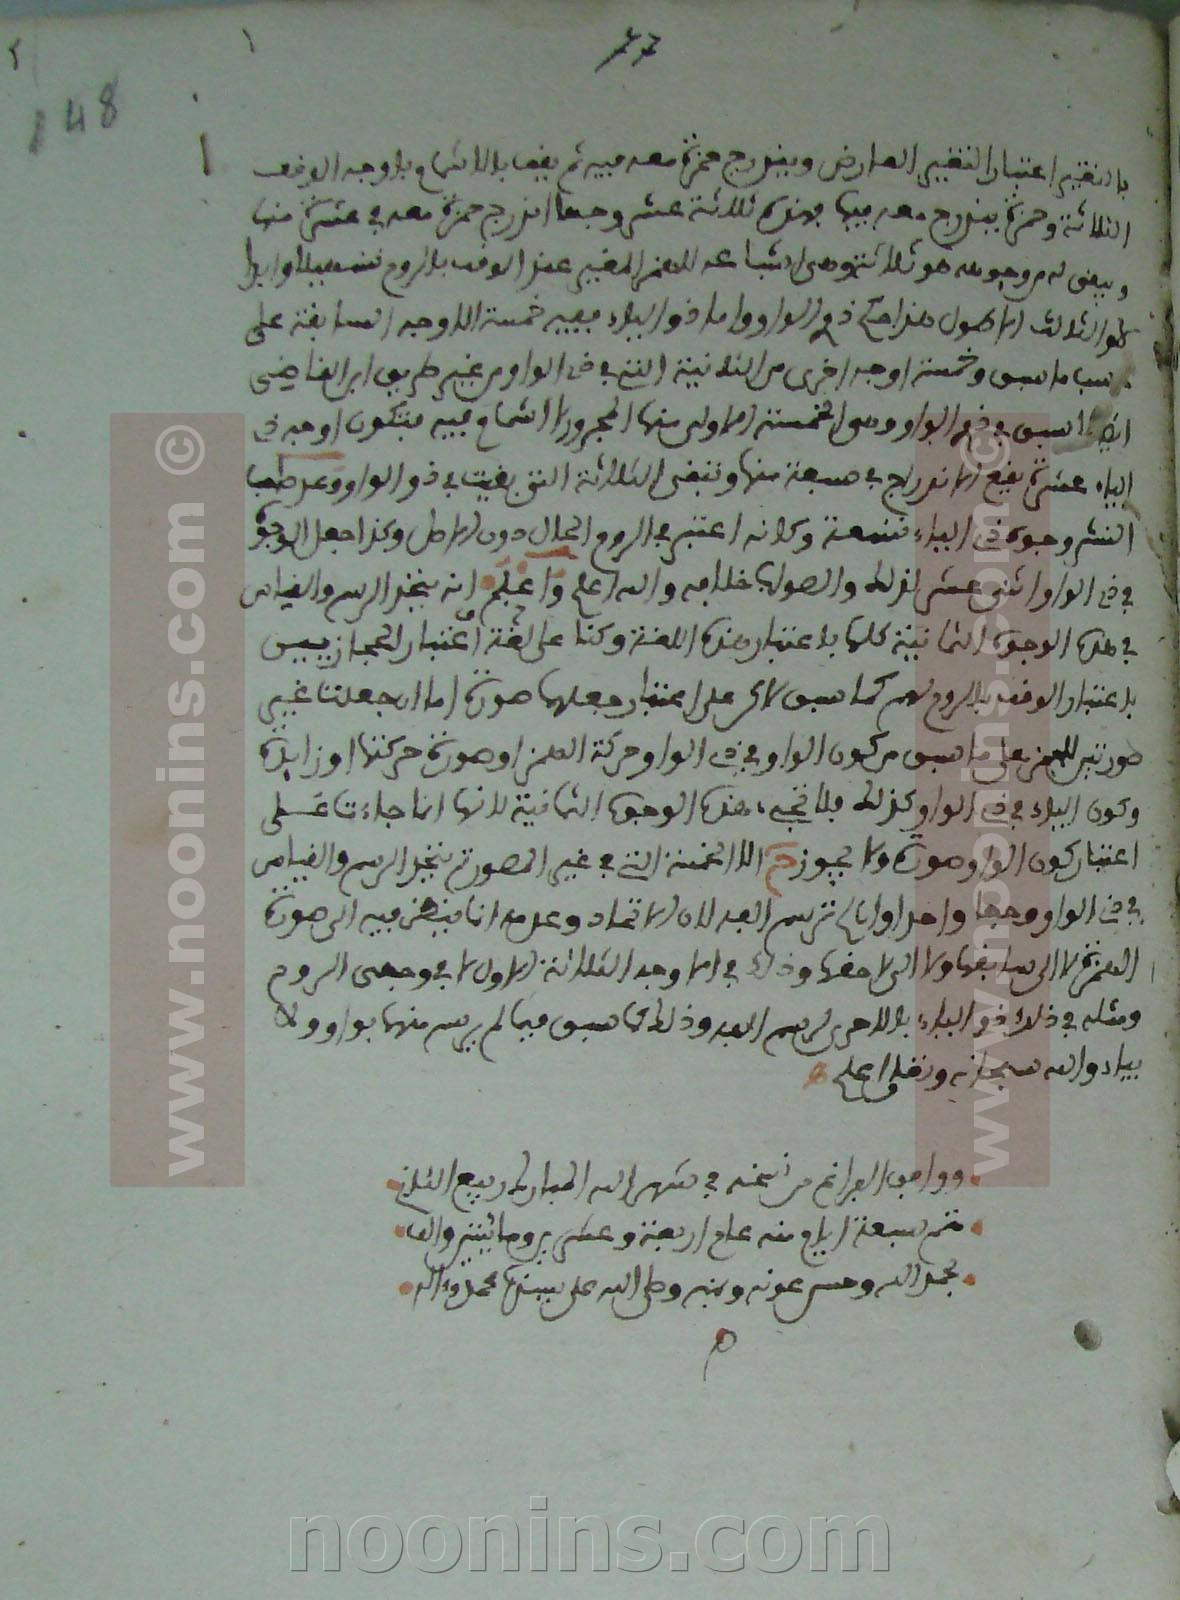 77
148
بالتغيير اعتبار التغيير العارض ويندرج حمزة معه فيه ثم يقف بالاشماع باوجه الوقف
الثلاثة وحمزة يندرج معه فيها فهذه ثلاثة عشر وجها اندرج حمزة معه في عشرة منها
ويبقى له من وجوهه هو ثلاثة وهي
الثلاث الاطول هذا حكم ذي الواو واما ذو الياء ففيه خمسة الاوجه السابقة على
ما سبق وخمسة اوجه اخرى من الثمانية التي في ذي الواو من غير طريق ابن القاضي
سبق في ذي الواو وهو الخمسة الاولى منها المجرورا اشماع فيه فتكون اوجه ذي
الياء عشرة يقع الاندراج في سبعة منها وتبقى الثلاثة التي بقيت في ذو الواو وعد صاحب
النشر وجوه ذي الياء تسعة وكانه اعتبر في الروم الحال دون الاصل وكذا جعل الوجوه
في ذي الواو اثني عشر لذلك والصواب خلافه والله اعلم واعلم انه يتخذ الرسم والقياس
في هذه الوجوه الثمانية كلها باعتبار هذه اللغة وكذا على لغة اعتبار الحجازيين
باعتبار الوقف بالروم لهم كما سبق لاكن على اعتبار جعلها صورة اما ان جعلتا غير
صورتين للهمز على ما سبق من كون الواو في ذي الواو حركة الهمز او صورة حركتها او زايدة
وكون الياء في ذي الواو كذلك فلا تجيء هذه الوجوه الثمانية لانها انما جاءت على
اعتبار كون الواو صورة ولا يجوز ح الا الخمسة التي في غير المصورة يتخذ الرسم والقياس
في ذي الواو وجها واحدا وان لم ترسم الفه لان الاتحاد وعدمه انما ينظر فيه الى صورة
الهمزة لا الى سابقها ولا الى لاحقها وذلك في الاوجه الثلاثة الاول لا في وجهي الروم
ومثله في ذلك ذو الياء بالاحرى لرسم الفه وذلك كما سبق فيما لم يرسم منها بواو ولا
بياء والله سبحانه وتعلى اعلم
ووافق الفراغ من نسخه في شهر الله المبارك ربيع الثاني
تتم سبعة ايام منه عام اربعة وعشرين ومايتين والف
بحمد الله وحسن عونه ويمنه وصلى الله على سيدنا محمد وءاله
www.noonins.com ©
www.noonins.com ©
noonins.com